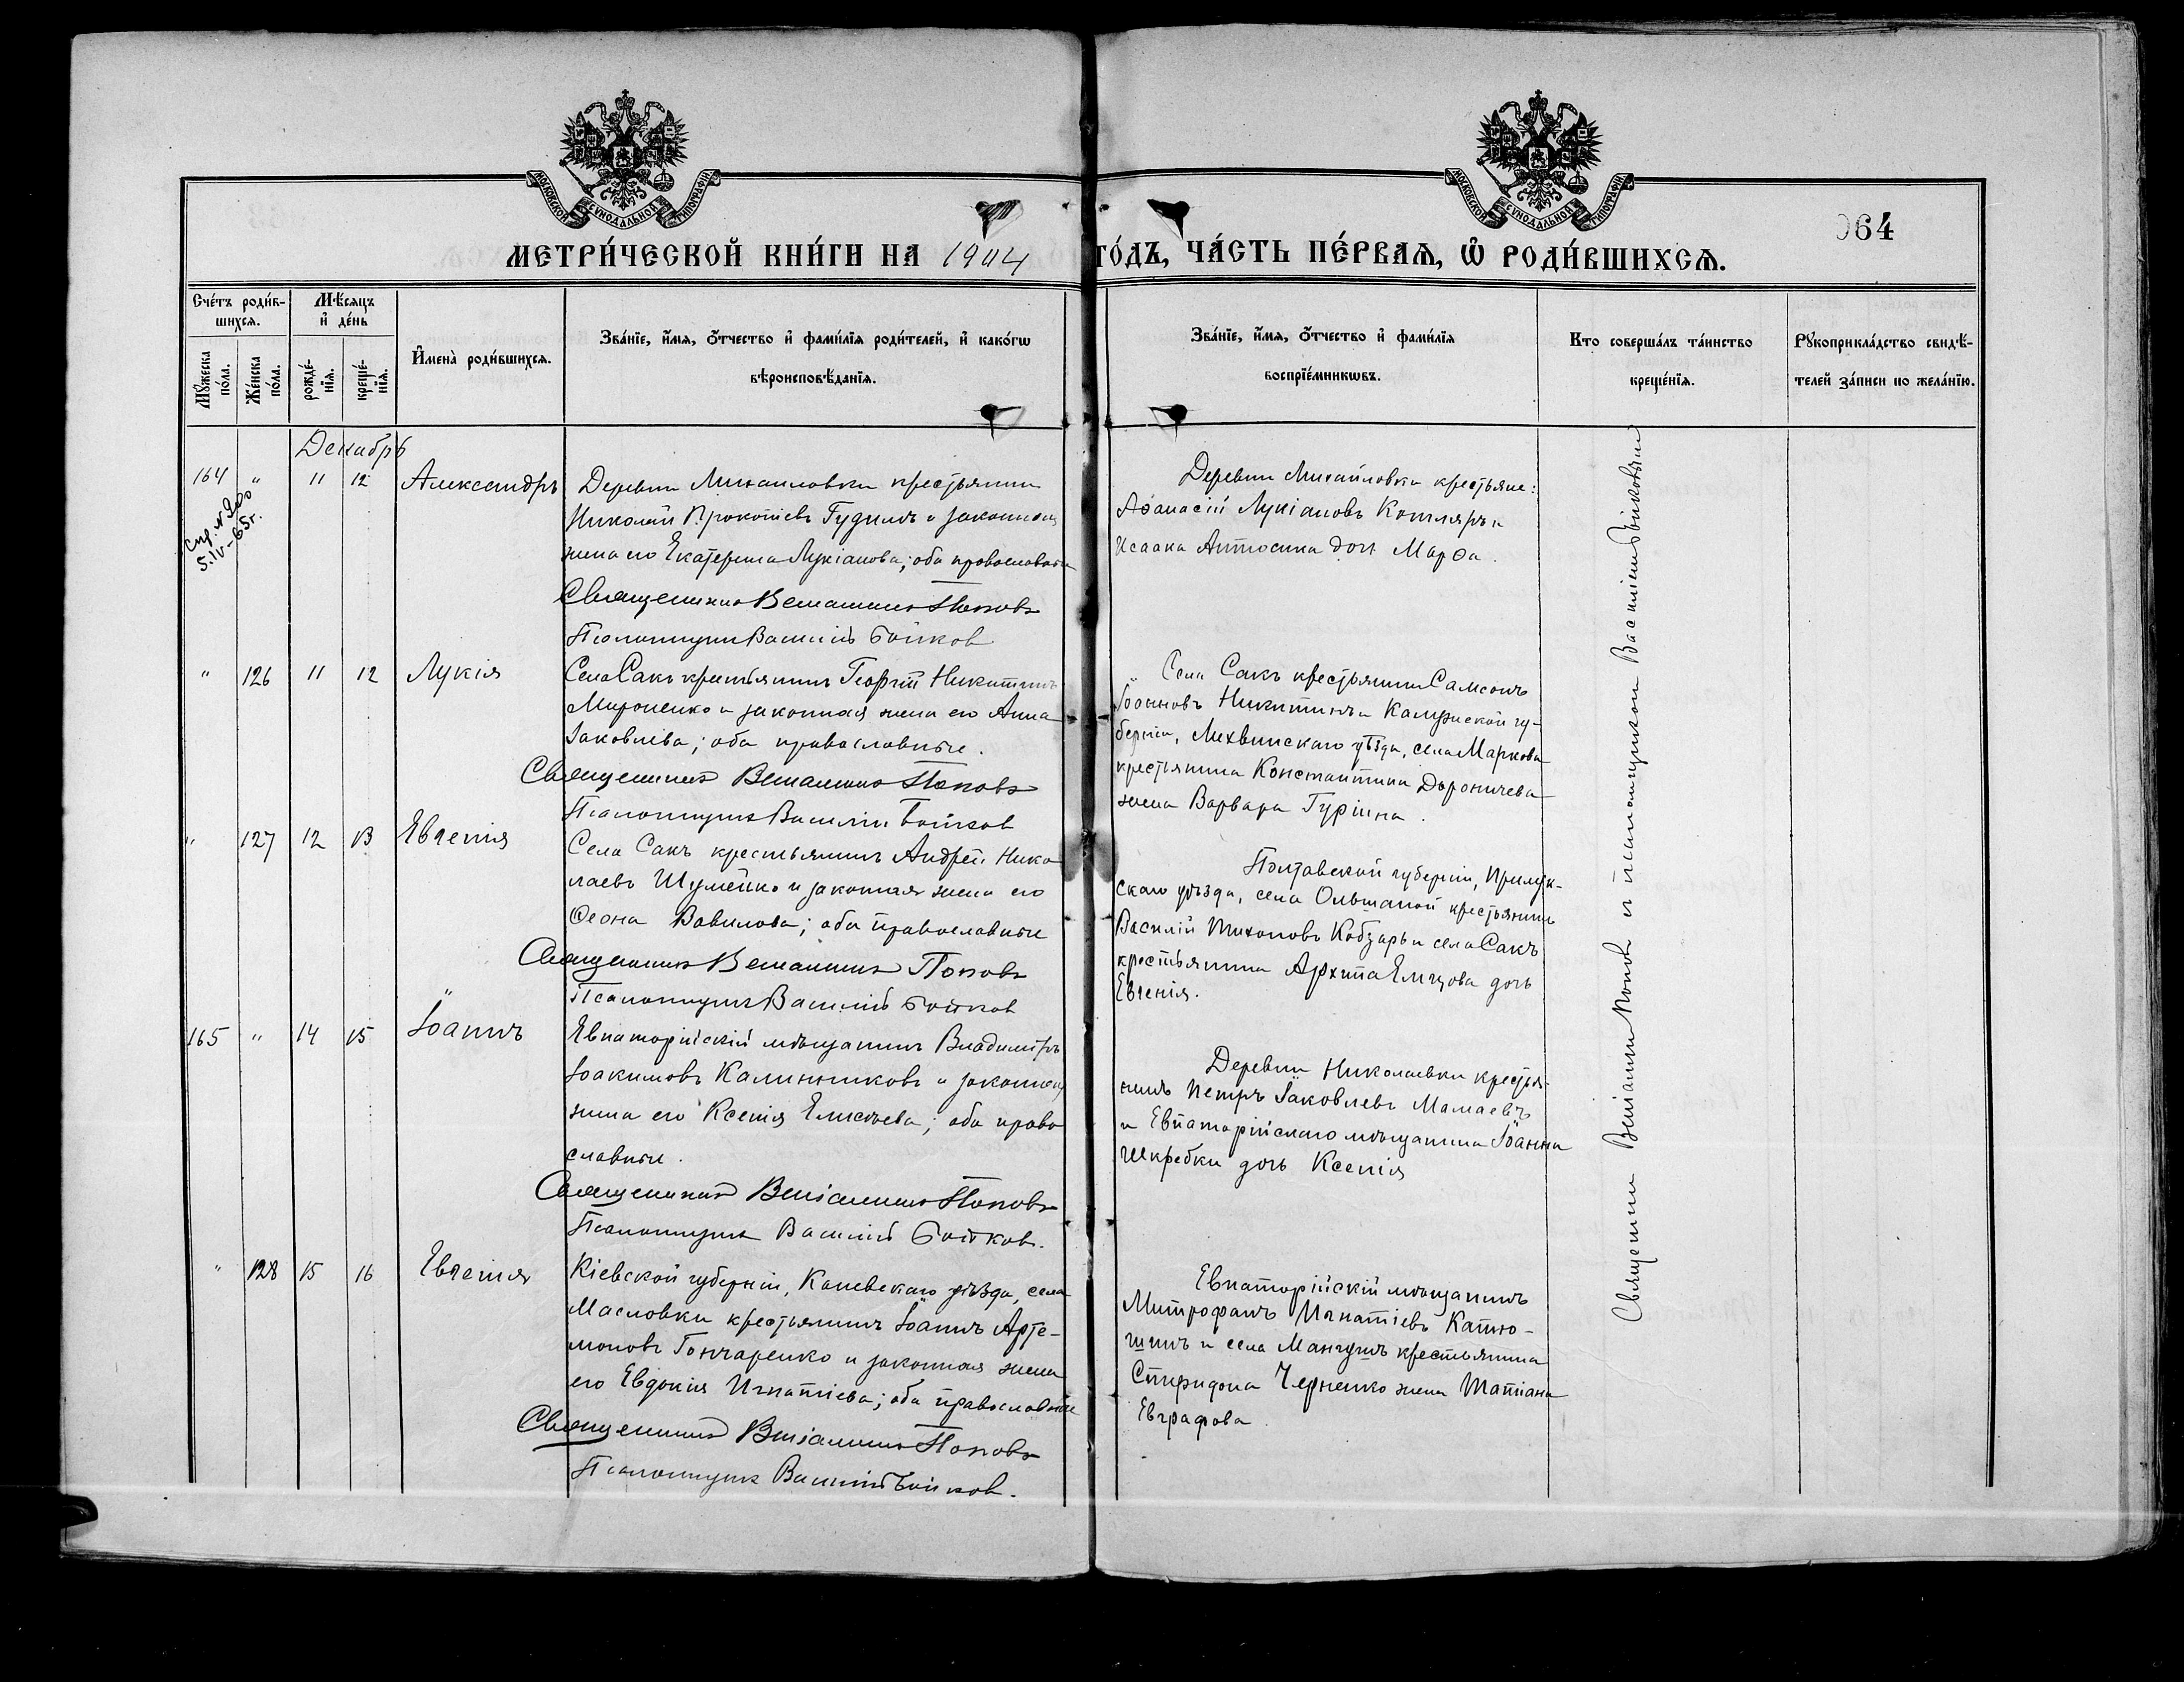 МОСКОВСКОЙ СѴНОДАЛЬНОЙ ТИПОГРАФІИ
МОСКОВСКОЙ СѴНОДАЛЬНОЙ ТИПОГРАФІИ
064
МЕТРИ́ЧЕСКОЙ КНИ́ГИ НА 1904 ГО́ДЪ, ЧА́СТЬ ПЕ́РВАѦ, Ѡ҆ РОДИ́ВШИХСѦ.
Сче́тъ роди́в-
шихсѧ.
Мꙋ́жеска по́ла.
Же́нска по́ла.
Мѣ́сѧцъ и҆ де́нь
рожде́-нїѧ.
креще́-нїѧ.
И҆мена̀ роди́вшихсѧ.
Зва́нїе, и҆́мѧ, ѻ҆́тчество и҆ фамилі́ѧ роди́телей, и҆ како́гѡ
вѣроисповѣ́данїѧ.
Зва́нїе, и҆́мѧ, ѻ҆́тчество и҆ фами́лїѧ
воспрїе́мникѡвъ.
Кто соверша́лъ та́инство
креще́нїѧ.
Рꙋкоприкла́дство свидѣ́-
телей за́писи по жела́нїю.
Декабрь
164 " 11 12 Александръ
Деревни Михайловки крестьянинъ
Николай Прокопіевъ Гудимъ и законная
жена его Екатерина Лукіанова; оба православные
Священникъ Веніаминъ Поповъ
Псаломщикъ Василій Бойков
Деревни Михайловки крестьяне:
Аѳанасій Лукіановъ Котляръ и
Исаака Антосика дочь Марѳа.
Спр. №
5.IV-65г.
" 126 11 12 Лукія
Села Сакъ крестьянинъ Георгій Никитинъ
Мироненко и законная жена его Анна
Іаковлева; оба православные.
Священникъ Веніаминъ Поповъ
Псаломщикъ Василій Бойков
Села Сакъ крестьянинъ Самсонъ
Іоанновъ Никитинъ и Калужской гу-
берніи, Лихвинскаго уѣзда, села Маркова
крестьянина Константина Дороничева
жена Варвара Гуріина.
" 127 12 13 Евгенія
Села Сакъ крестьянинъ Андрей Нико
лаевъ Шумейко и законная жена его
Ѳеона Вавилова; оба православные
Священникъ Веніаминъ Поповъ
Псаломщикъ Василій Бойков
Полтавской губерніи, Прилук-
скаго уѣзда, села Ольшаной крестьянинъ
Василій Тихоновъ Кобзарь и села Сакъ
крестьянина Архипа Емцова дочь
Евгенія.
165 " 14 15 Іоаннъ
Евпаторійскій мѣщанинъ Владиміръ
Іоакимовъ Калинниковъ и законная
жена его Ксенія Елисѣева; оба право
славные.
Священникъ Веніаминъ Поповъ
Псаломщикъ Василій Бойков.
Деревни Николаевки крестья-
нинъ Петръ Іаковлевъ Мамаевъ
и Евпаторійскаго мѣщанина Іоанна
Шкребки дочь Ксенія
" 128 15 16 Евгенія
Кіевской губерніи, Каневскаго уѣзда, села
Масловки крестьянинъ Іоаннъ Арте-
моновъ Гончаренко и законная жена
его Евдокія Игнатіева; оба православные
Священникъ Веніаминъ Поповъ
Псаломщикъ Василій Бойков.
Евпаторійскій мѣщанинъ
Митрофанъ Игнатіевъ Катю-
шинъ и села Мангушъ крестьянина
Спиридона Черненко жена Татіана
Евграфова
Священникъ Веніаминъ Попов и псаломщиком Василіем Бойковым